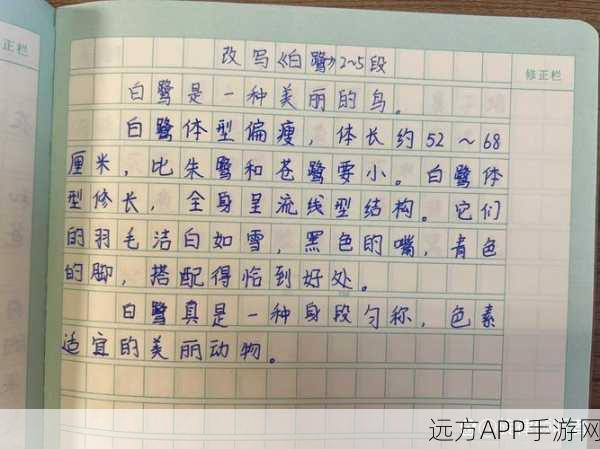 正栏
修正栏
改写《白鹭》2~5段
白鹭是一种美丽的鸟。
白鹭体型偏瘦，体长约52～68
厘米，比朱鹭和苍鹭要小。白鹭体
型修长，全身呈流线型结构。它们
的羽毛洁白如雪，黑色的嘴，青色
的脚，搭配得恰到好处。
白鹭真是一种身段匀称，色素
适宜的美丽动物。
远方APP手游网